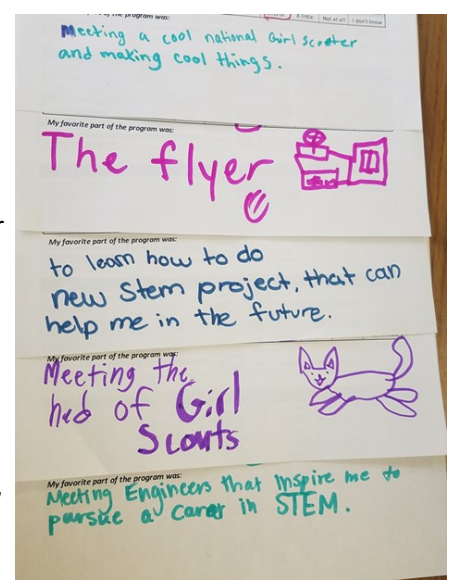 My favorite part of the program was:
A little | Not at all | I don't know
Meeting a cool national Girl Scooter
and making cool things.
My favorite part of the program was:
The flyer
My favorite part of the program was:
to learn how to do
new Stem project, that can
help me in the future.
My favorite part of the program was:
Meeting the
hed of Girl
Scouts
My favorite part of the program was:
Meeting Engineers that inspire me to
pursue a carer in STEM.